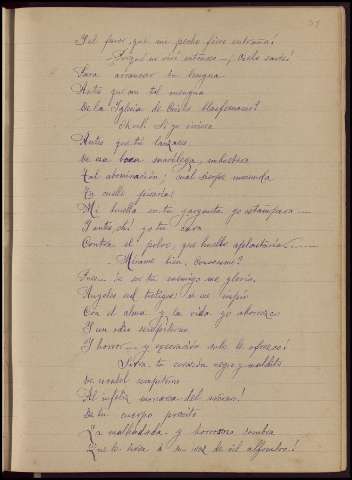 Del furor, que mi pecho fiero entraña!
¿Porqué no viví entonces — ¡Cielo santo!
Para arrancar tu lengua
Antes que en tal mengua
De la Iglesia de Cristo blasfemases?
¡Ah! Si yo viviera
Antes que tú lanzases
De esa boca sacrílega,
tal abominación; cual sierpe inmunda
Tu cuello pisaría!
Mi huella en tu garganta yo estampara....
Y antes, oh! yo tu cara
Contra el polvo, que huello aplastaría........
¿Mírame bien, conócesme?
Pues.... de ser tu enemigo me glorío,
Angeles sed testigos;
Con el alma y la vida yo aborrezco
Y un odio sempiterno
Y horror — y execración solo le ofrezco!
tu corazón negro y maldito
De
Al infeliz monarca del averno!
De tu cuerpo precito
La malhadada y horrorosa sombra
a su vez de vil alfombra!